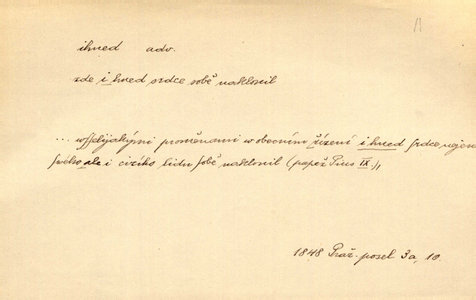 ihned adv.
zde i hned srdce sobě naklonil
... wſſelijakými proměnami w obecním řízení i hned ſrdce nejen
ſwého ale i cizího lidu ſobě naklonil (papež Pius IX.),
1848 Praž. posel 3a, 10.